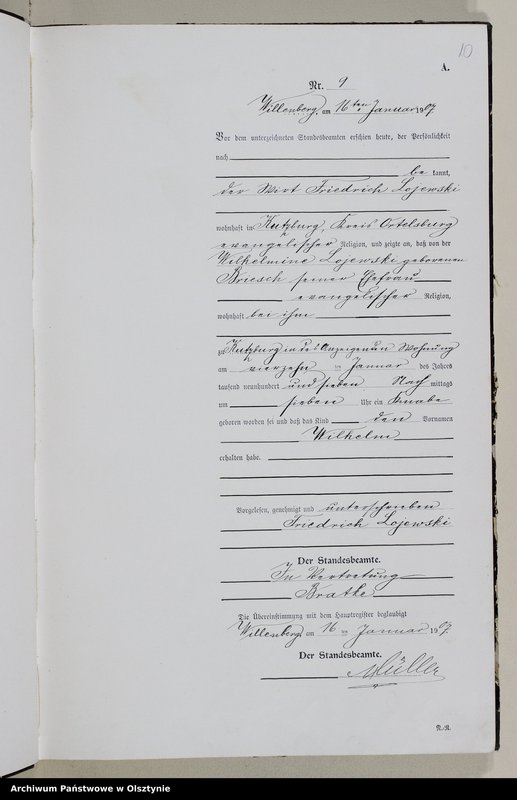 10
A.
Nr. 9
Willenberg, am 16ten Januar 1907.
Vor dem unterzeichneten Standesbeamten erschien heute, der Persönlichkeit
nach
be kannt,
der Wirt Friedrich Lojewski
wohnhaft in Kutzburg, Kreis Ortelsburg
evangelischer Religion, und zeigte an, daß von der
Wilhelmine Lojewski geborenen
Briesch seiner Ehefrau
evangelischer Religion,
wohnhaft bei ihm
zu Kutzburg in des Anzeigenden Wohnung
am vierzehn ten Januar des Jahres
tausend neunhundert und sieben Nach mittags
um sieben Uhr ein Knabe
geboren worden sei und daß das Kind den Vornamen
Wilhelm
erhalten habe.
Vorgelesen, genehmigt und unterschrieben
Friedrich Lojewski
Der Standesbeamte.
In Vertretung
Bratke
Die Übereinstimmung mit dem Hauptregister beglaubigt
Willenberg, am 16 ten Januar 1907.
Der Standesbeamte.
Müller
Archiwum Państwowe w Olsztynie